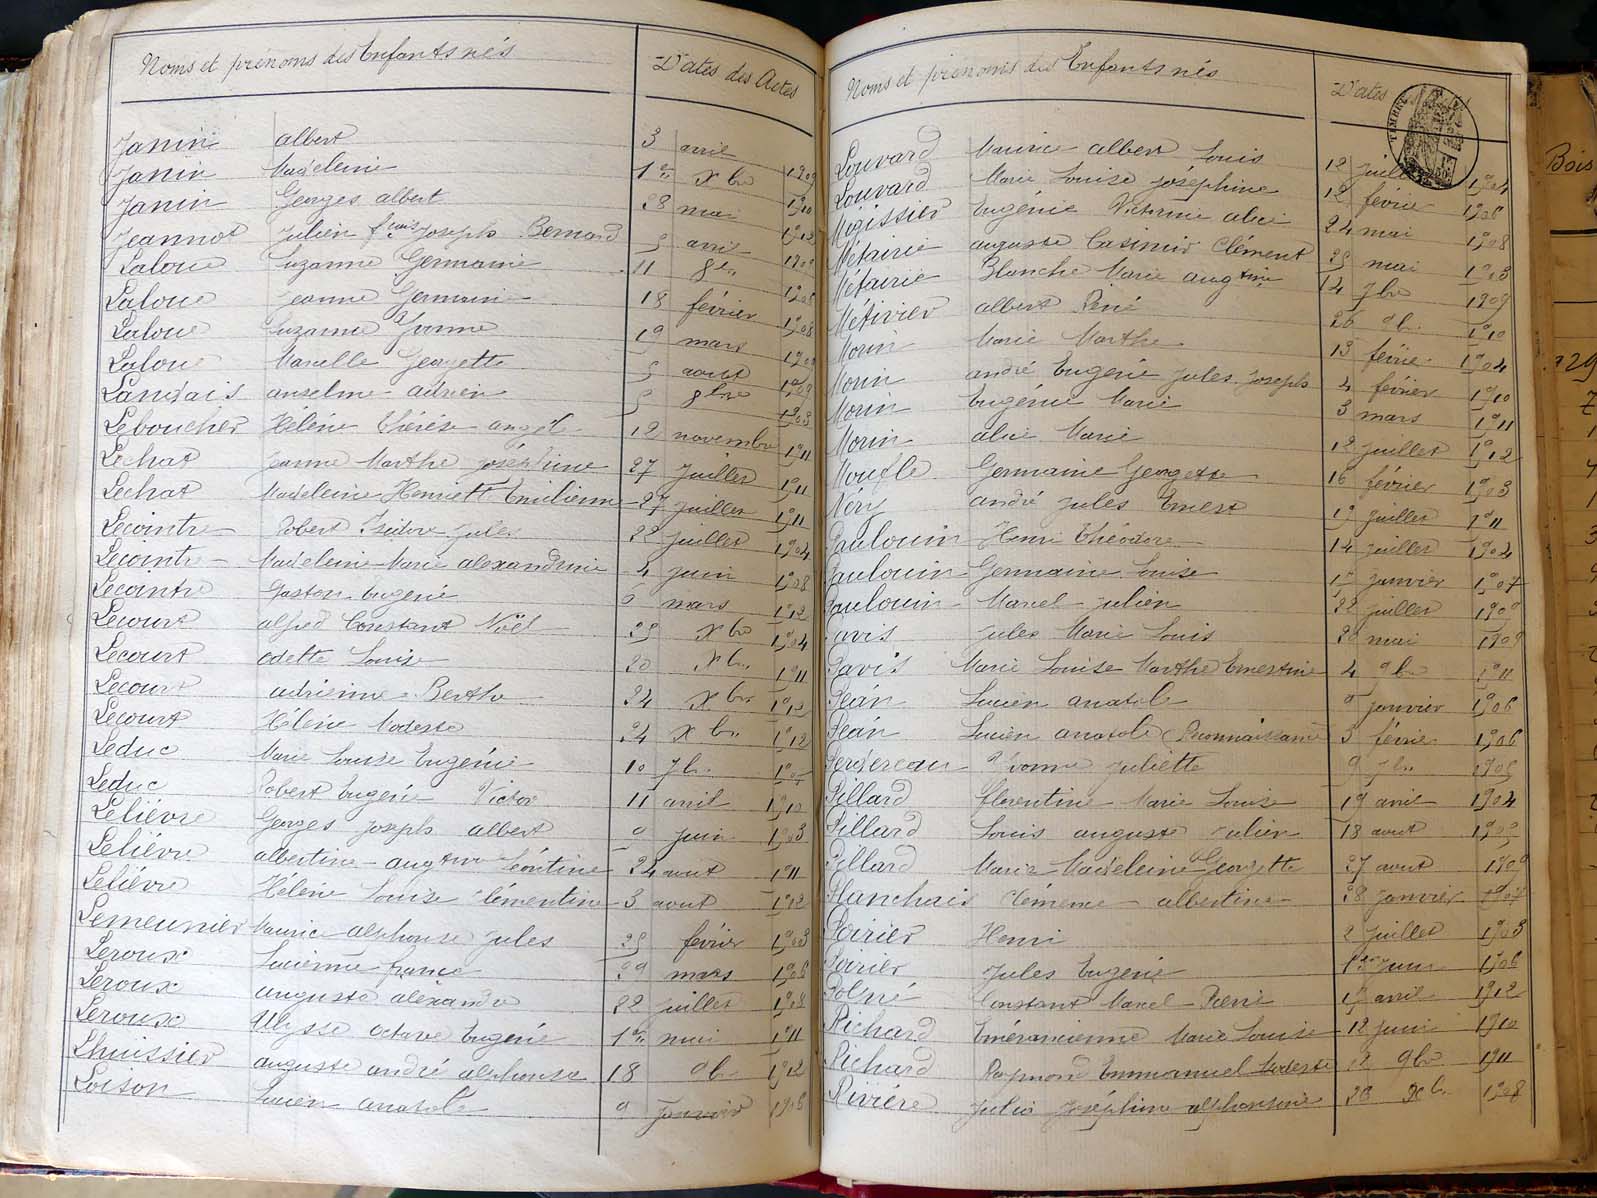 Noms et prénoms des Enfants nés Dates des Actes
Janin albert 3 avril 1909
Janin Madeleine 1er xbre 1910
Janin Georges albert 28 mai 1912
Jeannot Julien fçois Joseph Bernard avril
Laloue Suzanne Germaine 11 8bre
Laloue Jeanne Germaine 18 février 1908
Laloue Suzanne Yvonne 19 mars
Laloue Marcelle Georgette août 1909
Landais anselme adrien 8bre 1903
Leboucher Hélène Thérèse angèle 12 novembre 1911
Lechat Jeanne Marthe Joséphine 27 Juillet 1911
Lechat Madeleine Henriette Emilienne 27 juillet 1911
Lecointre Robert Isidore Jules 22 juillet 1904
Lecointre Madeleine Marie alexandrine 4 juin 1908
Lecointre Gaston Eugène mars 1912
Lecourt alfred Constant Noël 25 xbre 1904
Lecourt odette Louise 20 xbre 1911
Lecourt adrienne Berthe 24 xbre 1912
Lecourt Hélène Modeste 24 xbre 1912
Leduc Marie Louise Eugénie 10 7bre
Leduc Robert Eugène Victor 11 avril 1910
Lelièvre Georges Joseph albert 9 juin 1903
Lelièvre albertine augtine Léontine 24 aout 1911
Lelièvre Hélène Louise Clémentine 3 aout 1912
Lemeunier Maurice alphonse Jules 25 février 1903
Leroux Lucienne france 29 mars 1906
Leroux auguste aléxandre 22 juillet 1908
Leroux Ulysse octave Eugène 1er mai 1911
Lhuissier auguste andré alphonse 18 9bre 1912
Loison Lucien anatole 9 Janvier 1906
Noms et prénoms des Enfants nés Dates
TIMBRE
Louvard Maurice albert Louis 12 juillet 1904
Louvard Marie Louise Joséphine 12 février 1906
Mégissier Eugénie Victorine alice 24 mai 1908
Métairie auguste Casimir Clément 25 mai 1903
Métairie Blanche Marie augtine 14 7bre 1909
Métivier albert René 26 9bre 1910
Morin Marie Marthe 13 février 1904
Morin andré Eugène Jules Joseph 4 février 1910
Morin Eugénie Marie 3 mars 1911
Morin alice Marie 12 juillet 1912
Moufle Germaine Georgette 16 février 1903
Néry andré Jules Ernest juillet 1911
Paulouin Henri Théodore 14 juillet 1904
Paulouin Germaine Louise janvier 1907
Paulouin Marcel Julien 22 juillet
Pavis Jules Marie Louis 20 mai 1909
Pavis Marie Louise Marthe Ernestine 4 9bre 1911
Péan Lucien anatole 9 janvier 1906
Péan Lucien anatole (Reconnaissance 3 février 1906
Perdereau Yvonne Juliette 9 7bre
Pillard florentine Marie Louise 19 avril 1904
Pillard Louis auguste Julien 18 aout
Pillard Marie Madeleine Georgette 27 aout 1909
Planchais Clémence albertine 28 janvier 1907
Poirier Henri 2 juillet 1903
Poirier Jules Eugène 1er juin 1906
Polpré Constant Marcel Pierre avril 1912
Richard Emérancienne Marie Louise 12 juin 1910
Richard Raymond Emmanuel Modeste 12 9bre 1911
Rivière Julia Joséphine alphonsine 28 xbre 1908
Bois
729